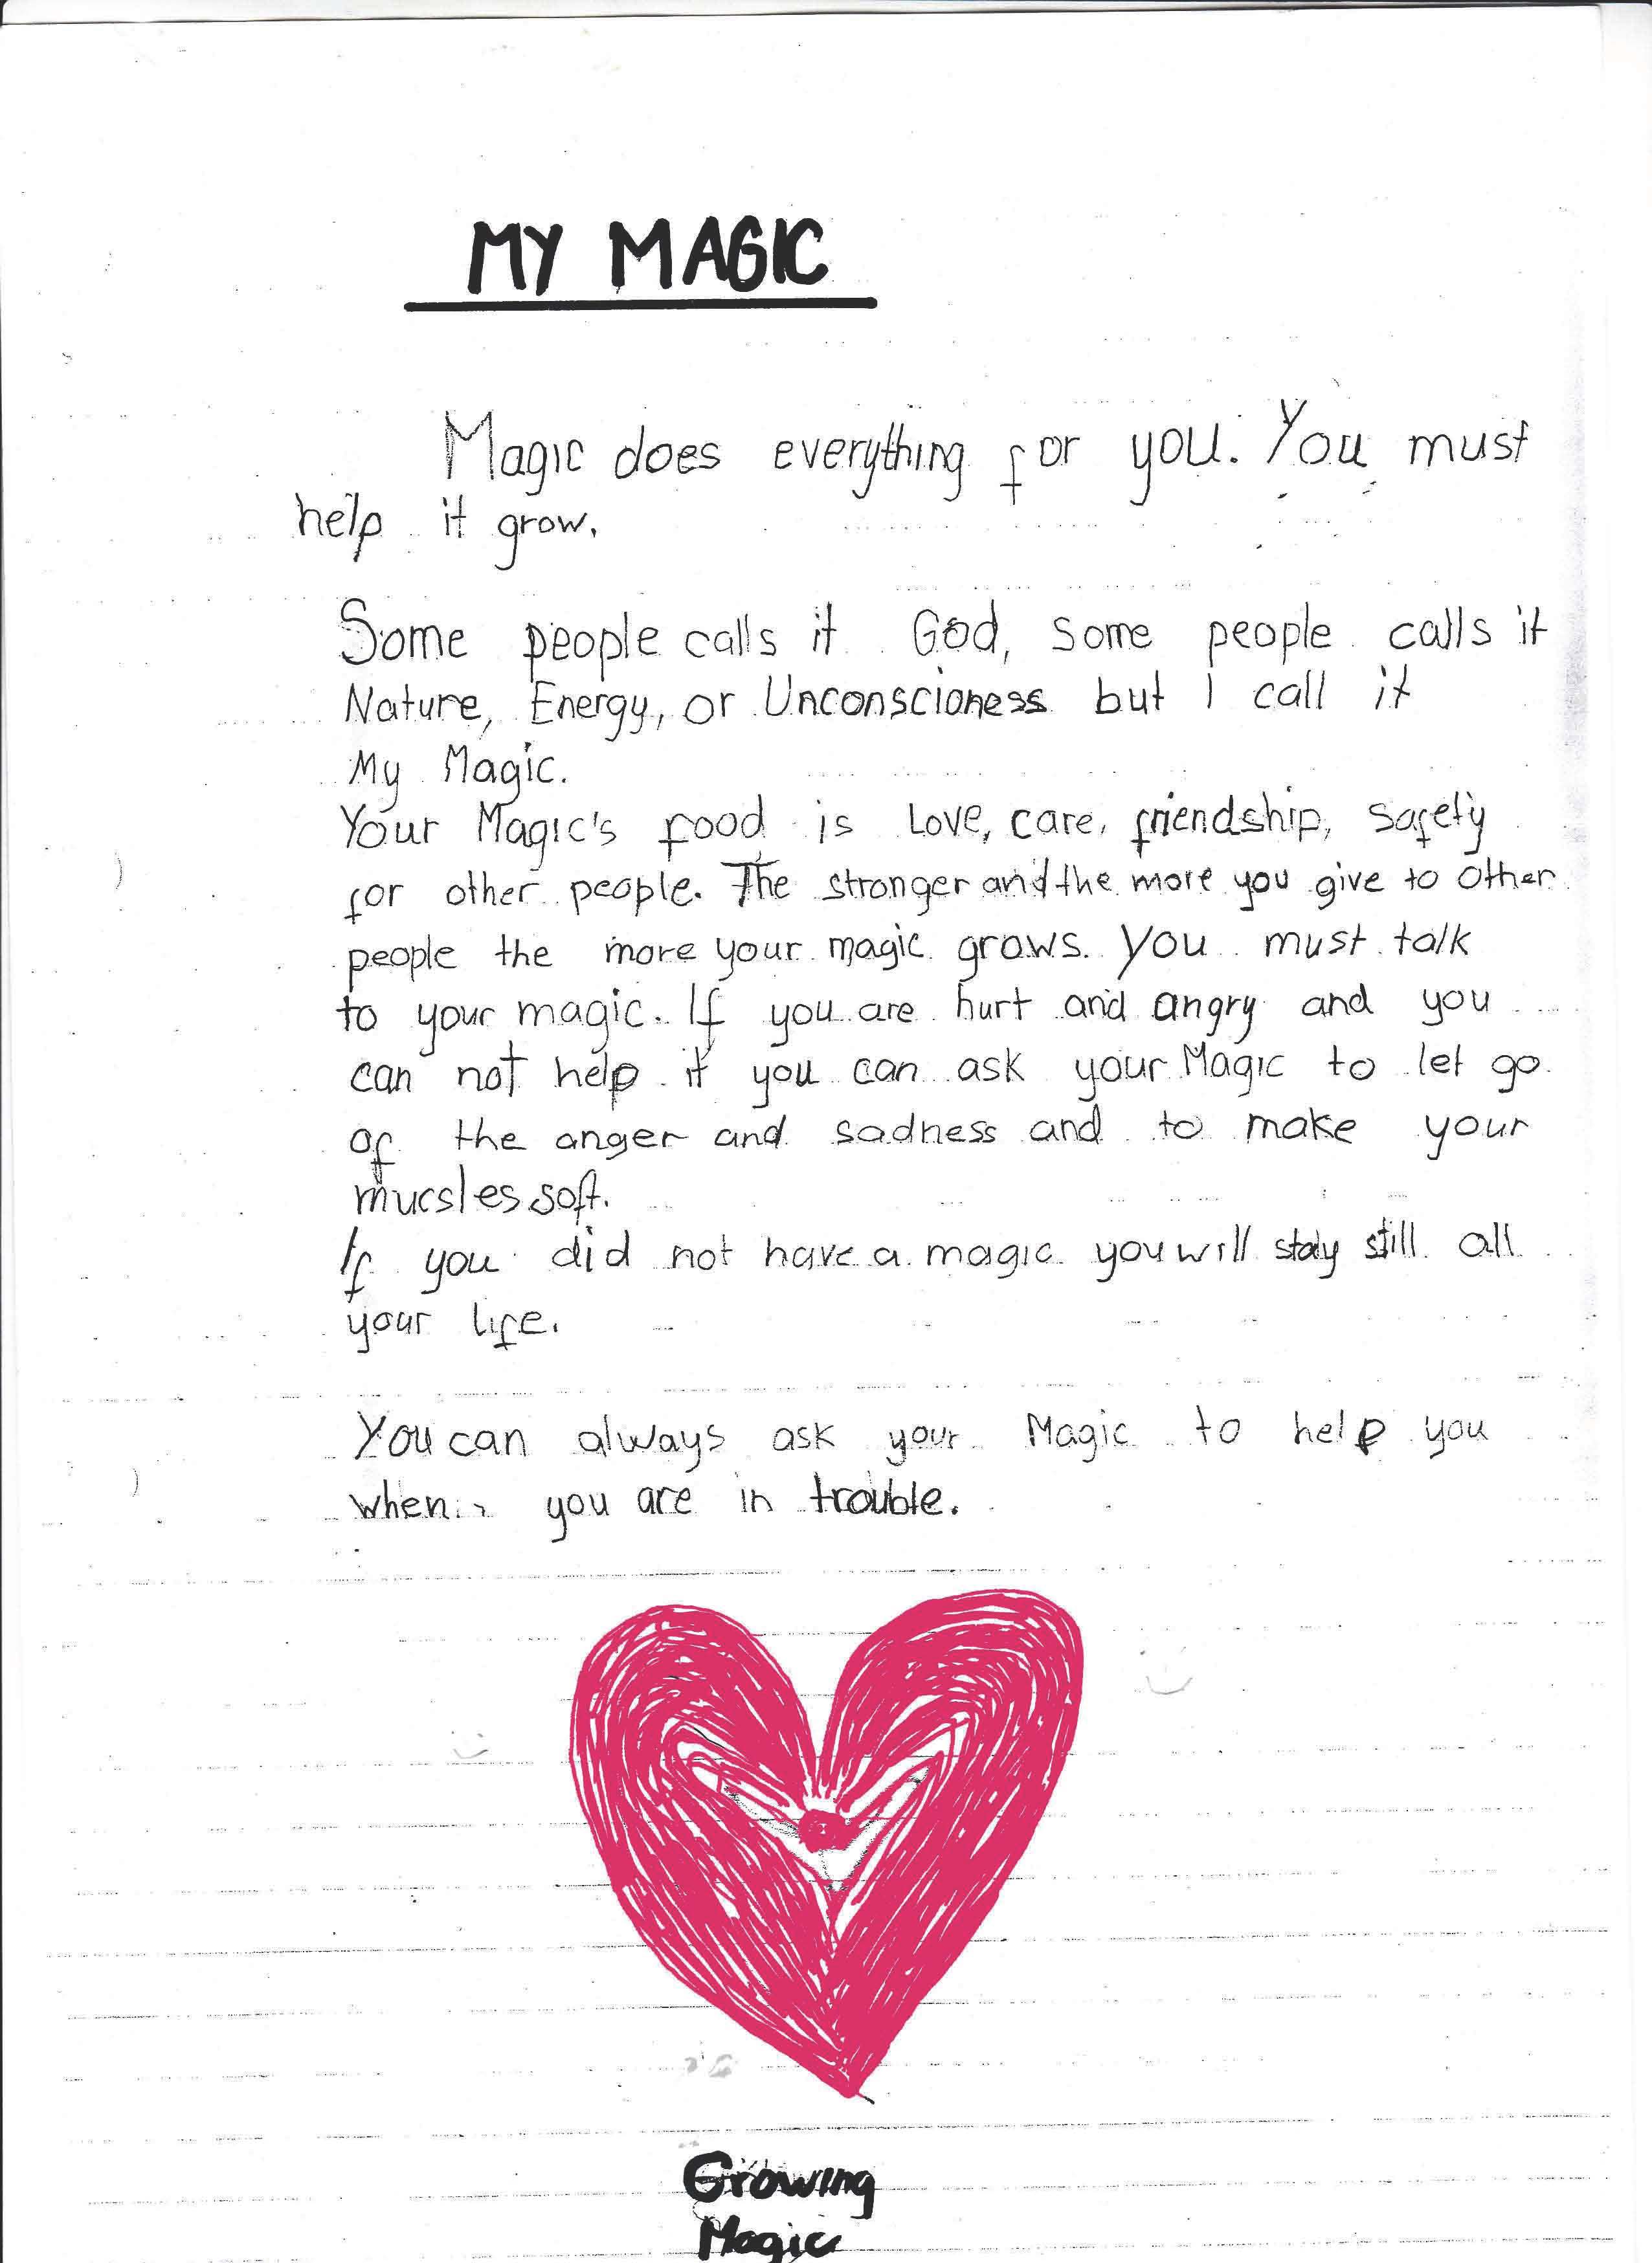 MY MAGIC
Magic does everything for you. You must
help it grow.
Some people calls it God, some people calls it
Nature, Energy, or Unconscioness but I call it
My Magic.
Your Magic's food is Love, care, friendship, safety
for other people. The stronger and the more you give to other
people the more your magic grows. You must talk
to your magic. If you are hurt and angry and you
can not help it you can ask your Magic to let go
of the anger and sadness and to make your
mucsles soft.
If you did not have a magic you will stay still all
your life.
You can always ask your Magic to help you
when you are in trouble.
Growing
Magic